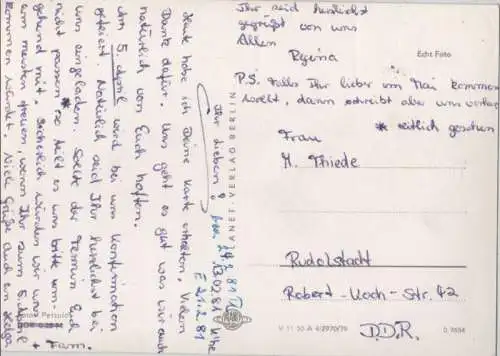 Ihr Lieben!
Heute habe ich Deine Karte erhalten. Vielen
Dank dafür. Uns geht es gut was wir auch
natürlich von Euch hoffen.
Am 5. April wird bei uns Konfirmation
gefeiert. Natürlich seid Ihr herzlichst bei
uns eingeladen. Sollte der Termin Euch
nicht passen* so teilt es uns bitte um-
gehend mit. Sicherlich würden wir uns
am meisten freuen wenn Ihr zum 5. April
kommen würdet. Viele Grüße auch an Helga
+ Fam.
Ihr seid herzlichst
gegrüßt von uns
Allen
Regina
P.S. Falls Ihr lieber im Mai kommen
wollt, dann schreibt aber uns vorher
* zeitlich gesehen
Echt Foto
Frau
M. Thiede
Rudolstadt
Robert-Koch-Str. 42
D.D.R.
PLANET-VERLAG BERLIN
13.02.81
E 21.2.81
V 11 50 A 4/2970/79